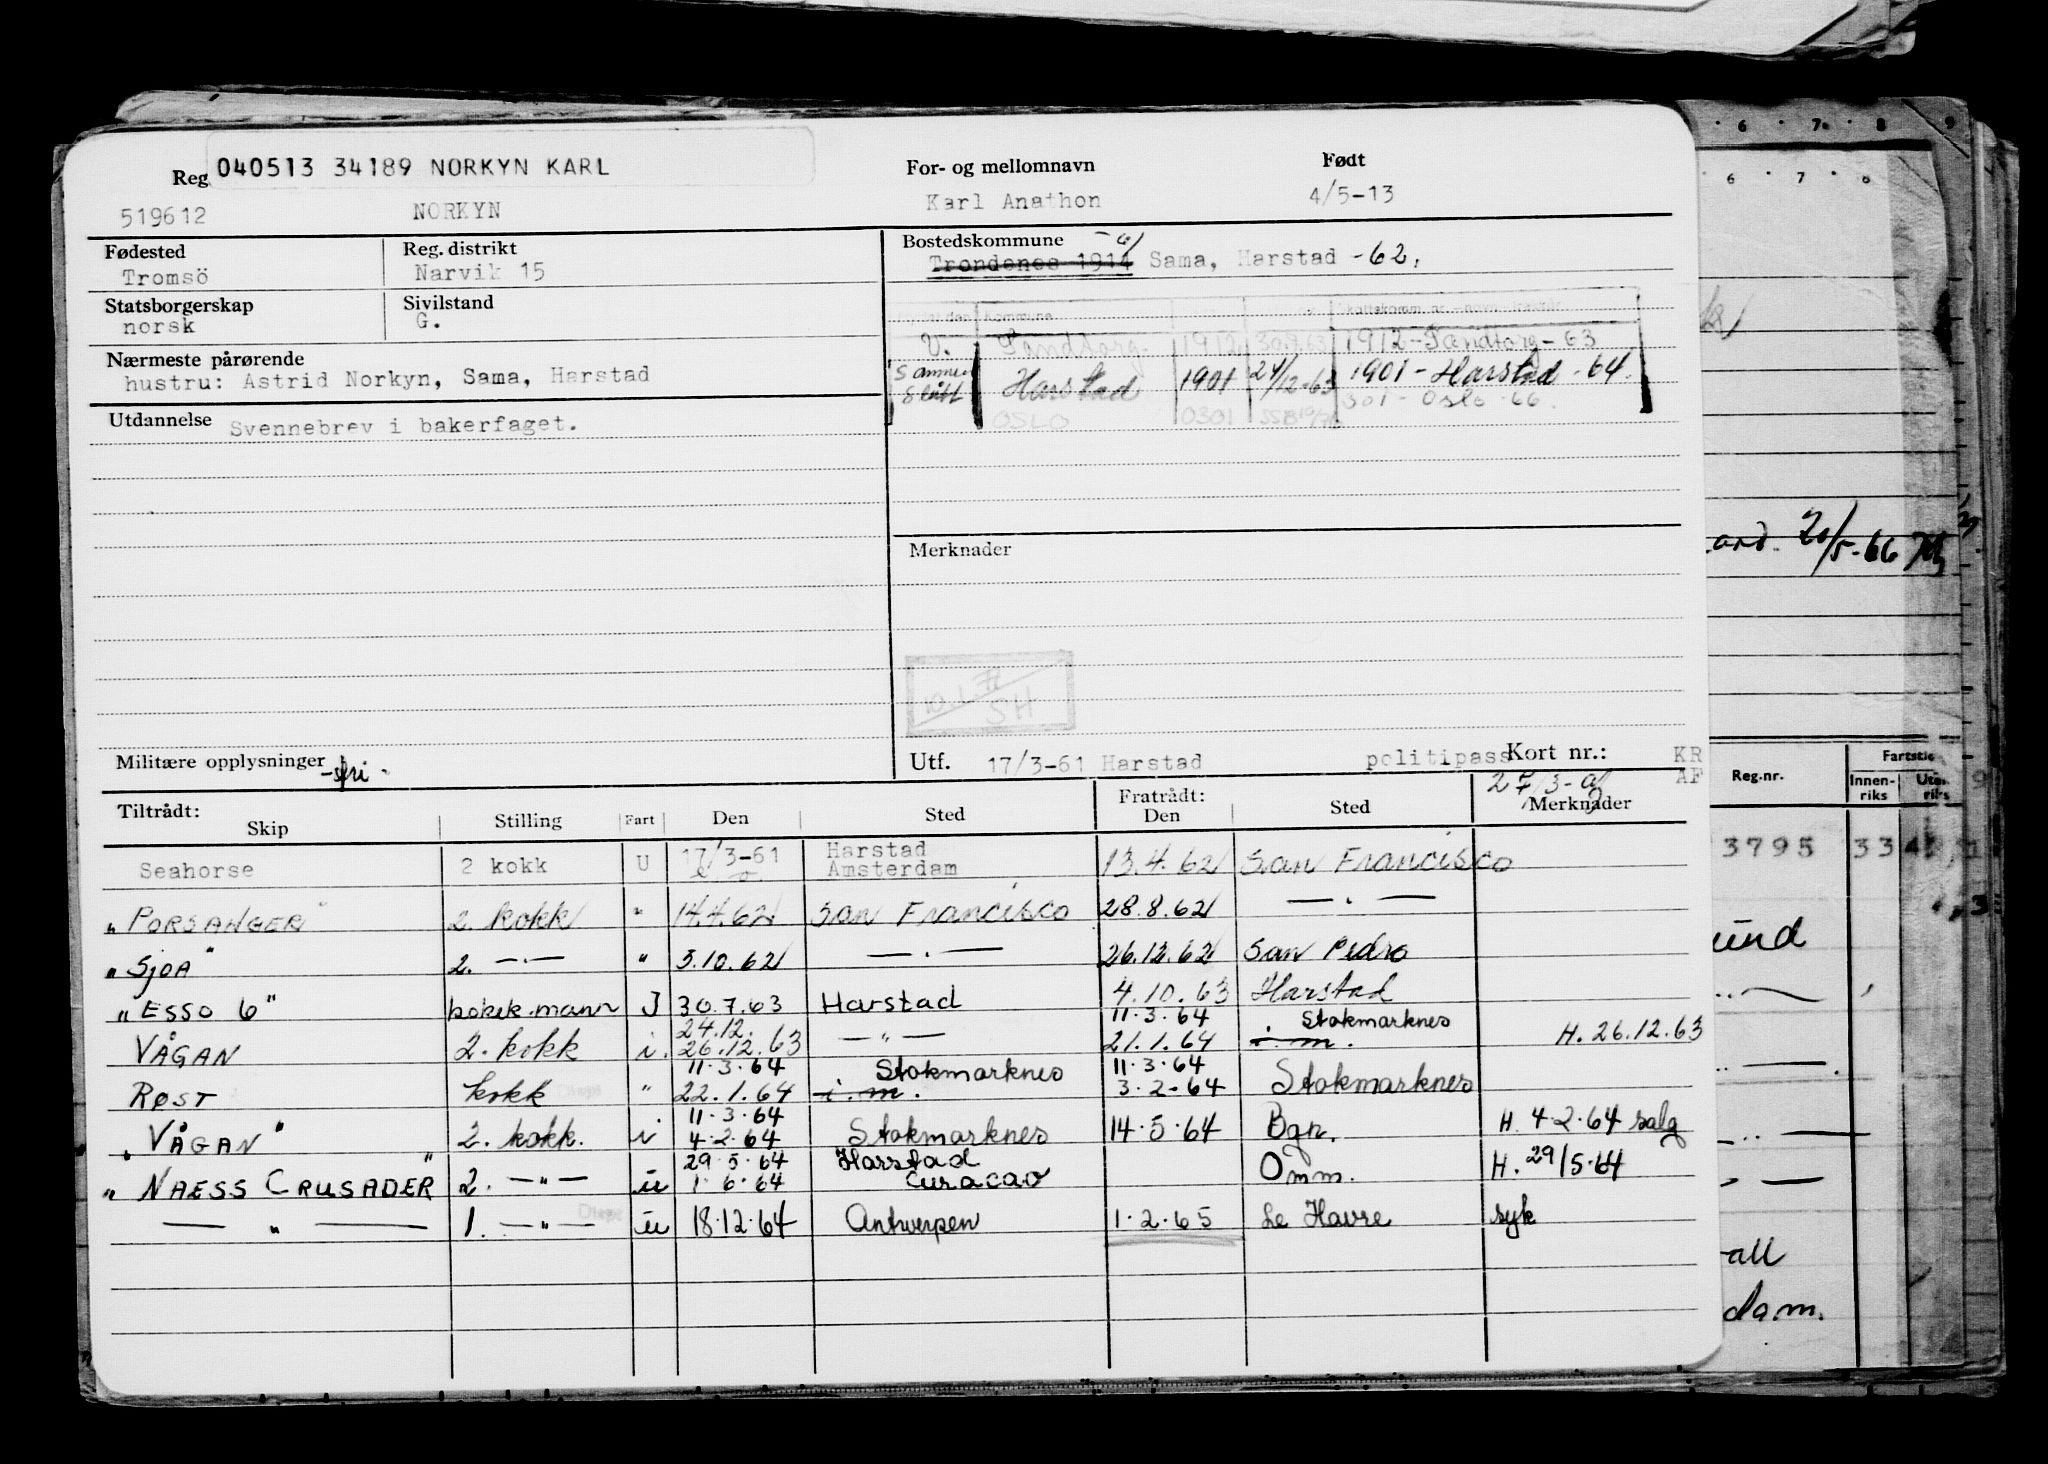 Reg 040513 34189 NORKYN KARL
For- og mellomnavn
Født
519612 NORKYN Karl Anathon 4/5-13
Fødested
Tromsö
Reg. distrikt
Narvik 15
Bostedskommune
Trondenes 1914 Sama, Harstad -62.
Statsborgerskap
norsk
Sivilstand
G.
Kommune
V. Sandtorg 1912 30.7.63 1912-Sandtorg-63
Harstad 1901 24/12-63 1901-Harstad-64.
OSLO 0301 301-Oslo-66.
Nærmeste pårørende
hustru: Astrid Norkyn, Sama, Harstad
Utdannelse Svennebrev i bakerfaget.
Merknader
SH
Militære opplysninger -fri-
Utf. 17/3-61 Harstad politipass Kort nr.: KR
AF
Tiltrådt:
Skip Stilling Fart Den Sted
Fratrådt:
Den Sted Merknader
Seahorse 2 kokk U 17/3-61 Harstad
Amsterdam 13.4.62 San Francisco
"PORSANGER" 2. kokk " 14.4.62 San Francisco 28.8.62 — " —
"SJOA" 2. — " — " 3.10.62 — " — 26.12.62 San Pedro
"ESSO 6" J 30.7.63 Harstad 4.10.63 Harstad
VÅGAN 2. kokk i. 24.12.
26.12.63 — " — 11.3.64
21.1.64 Stokmarknes
i. m. H. 26.12.63
RØST kokk " 11.3.64
22.1.64 Stokmarknes
i. m. 11.3.64
3-2-64 Stokmarknes
"VÅGAN" 2. kokk. i 11.3.64
4.2.64 Stokmarknes 14.5.64 Bgn. H. 4-2-64 salg
"NAESS CRUSADER" 2. — " — u 29.5.64
1.6.64 Harstad
Curacao Omm. H. 29/5-64
— " — 1. — " — u 18.12.64 Antwerpen 1.2.65 Le Havre syk
6 7 8 9
6 7 8
20/5-66
Reg.nr.
Fartstid
Innen-
riks
3795 334
und
all
dam.